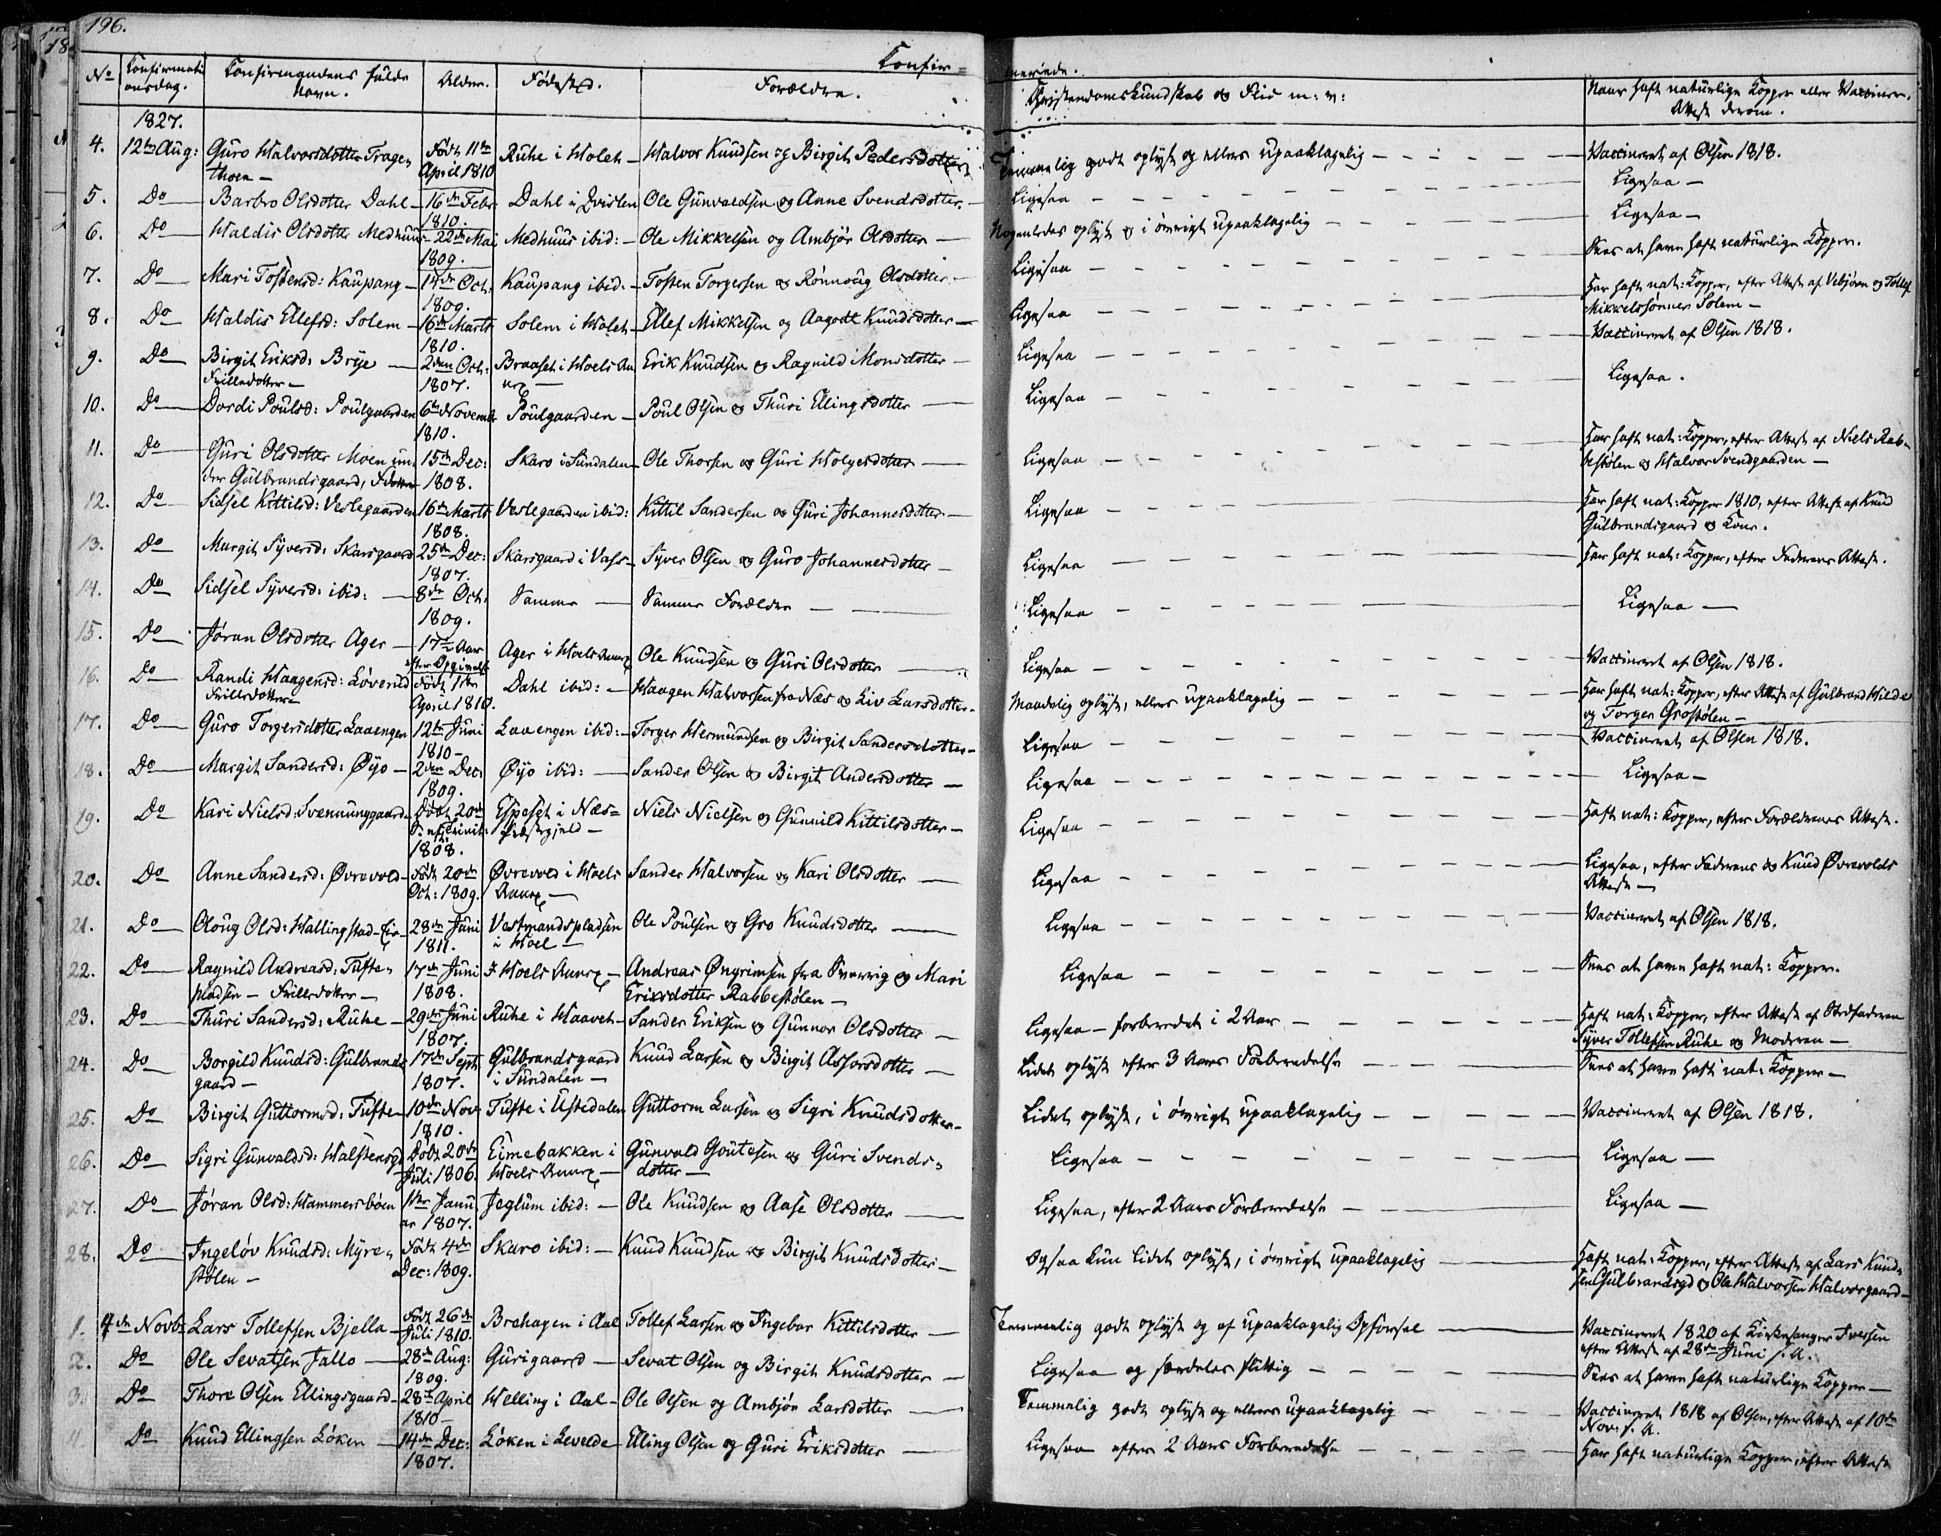 196.
Confirmerede.
No
Confirmationsdag.
Confirmandens fulde Navn.
Alder.
Fødested.
Forældre.
Christendomskundskab og Flid m: v:
Naar haft naturlige Kopper eller Vaccineret. Attest derom.
1827.
4. 12te Aug: Guro Halvorsdotter Tragethoen — Født 11te April 1810 Ruhe i Holet — Halvor Knudsen og Birgit Pedersdotter Temmelig godt oplyst og ellers upaaklagelig — Vaccineret af Olsen 1818.
5. Do Barbro Olsdotter Dahl — 16de Febr 1810. Dahl i Qvislen Ole Gunvaldsen og Anne Svendsdotter. Ligesaa — Ligesaa —
6. Do Haldis Olsdotter Medhuus — 22de Mai 1809. Medhuus ibid: — Ole Mikkelsen og Ambjør Olsdotter — Nogenledes oplyst og i øvrigt upaaklagelig — Ligesaa —
7. Do Mari Tostensd: Kaupang — 14de Oct: 1809. Kaupang ibid: — Tosten Torgersen og Rønnoug Olsdotter — Ligesaa — Sees at have haft naturlige Kopper.
8. Do Haldis Ellefsd: Solem — 16de Marts 1810. Solem i Holet — Ellef Mikkelsen og Aagodt Knudsdotter — Ligesaa — Har haft nat: Kopper, efter Attest af Vebjørn og Tollef Mikkelssønner Solem —
9. Do Birgit Eriksd: Brye — Frilledotter — 2den Oct: 1807. Braaset i Hoels Annex — Erik Knudsen og Ragnild Monsdotter — Ligesaa — Vaccineret af Olsen 1818.
10. Do Dordi Poulsd: Poulgaarden 6te Novemb 1810. Poulgaarden — Poul Olsen og Thuri Ellingsdotter — Ligesaa — Ligesaa.
11. Do Guri Olsdotter Moen under Gulbrandsgaard, 15de Dec: 1808. Skaro i Sundalen Ole Thorsen og Guri Holgersdotter — Ligesaa — Har haft nat: Kopper, efter Attest af Niels Rabbestølen og Halvor Svendgaarden —
12. Do Sidsel Kittilsd: Veslegaarden 16de Marts 1808. Veslegaarden ibid: Kittil Sandersen og Guri Johannesdotter — Ligesaa — Har haft nat: Kopper 1810, efter Attest af Knud Gulbrandsgaard og Kone.
13. Do Margit Syversd: Skarsgaard 25de Dec: 1807. Skarsgaard i Vats — Syver Olsen og Guro Johannesdotter — Ligesaa — Har haft nat: Kopper, efter Faderens Attest.
14. Do Sidsel Syversd: ibid: — 8de Oct: 1809. Samme — Samme Forældre — Ligesaa — Ligesaa —
15. Do Jøran Olsdotter Ager — 17 Aar efter Opgivelse Ager i Hoels Annex Ole Knudsen og Guri Olsdotter — Ligesaa — Vaccineret af Olsen 1818.
16. Do Randi Haagensd: Løverud Frilledotter Født 1ste April 1810. Dahl ibid: — Haagen Halvorsen fra Næs og Liv Larsdotter — Maadelig oplyst, ellers upaaklagelig — Har haft nat: Kopper, efter Attest af Gulbrand Hilde og Torger Grostølen —
17. Do Guro Torgersdotter Laaengen 12te Juni 1810 — Laaengen ibid: — Torger Hermundsen og Birgit Sandersdotter — Ligesaa — Vaccineret af Olsen 1818.
18. Do Margit Sandersd: Øyo — 2den Dec: 1809. Øyo ibid: — Sander Olsen og Birgit Andersdotter — Ligesaa — Ligesaa —
19. Do Kari Nielsd: Svenkunggaard Døbt 20de S: ef: Trinit: 1808. Espeset i Næs Præstegjeld — Niels Nielsen og Gunnild Kittilsdotter — Ligesaa — Haft nat: Kopper, efter Forældrenes Attest.
20. Do Anne Sandersd: Øvrevold — Født 20de Oct: 1809. Øvrevold i Hoels Annex — Sander Halvorsen og Kari Olsdotter — Ligesaa — Ligesaa, efter Faderens og Knud Øvrevolds Attest —
21. Do Oloug Olsd: Hallingstad-Eie 28de Juni 1811. Vestmandspladsen i Hoel — Ole Poulsen og Gro Knudsdotter — Ligesaa — Vaccineret af Olsen 1818.
22. Do Ragnild Andreasd: Tuftepladsen — Frilledotter — 17de Juni 1808. I Hoels Annex — Andreas Øngrimsen fra Sverrig og Mari Eriksdotter Rabbestølen — Ligesaa — Sees at have haft nat: Kopper.
23. Do Thuri Sandersd: Ruhe — 29de Juni 1807. Ruhe i Haavet — Sander Eriksen og Gunnor Olsdotter — Ligesaa — forberedet i 2 Aar — Haft nat: Kopper, efter Attest af Stedfaderen Syver Tollefsen Ruhe og Moderen —
24. Do Borgild Knudsd: Gulbrandsgaard — 17de Sept 1807. Gulbrandsgaard i Sundalen — Knud Larsen og Birgit Assorsdotter — Lidet oplyst efter 3 Aars Forberedelse — Sees at have haft nat: Kopper —
25. Do Birgit Guttormsd: Tufte 10de Nov 1810. Tufte i Ustedalen Guttorm Larsen og Sigri Knudsdotter — Lidet oplyst, i øvrigt upaaklagelig — Vaccineret af Olsen 1818.
26. Do Sigri Gunvaldsd: Halstensgd Døbt 20de Juli 1806. Eimebakken i Hoels Annex — Gunvald Goutesen og Guri Svendsdotter — Ligesaa — Ligesaa —
27. Do Jøran Olsd: Hammersbøen 1ste Januar 1807. Jeglum ibid: — Ole Knudsen og Aase Olsdotter — Ligesaa, efter 2 Aars Forberedelse — Ligesaa —
28. Do Ingeløv Knudsd: Myrestølen — Født 4de Dec: 1809. Skaro ibid: — Knud Knudsen og Birgit Knudsdotter — Ogsaa kun lidet oplyst, i øvrigt upaaklagelig — Haft nat: Kopper, efter Attest af Lars Knudsen Gulbrandsgd og Ole Halvorsen Halvorsgaard —
1. 4de Novbr Lars Tollefsen Bjella — Født 26de Juli 1810. Brehagen i Aal Tollef Larsen og Ingebor Kittilsdotter — Temmelig godt oplyst og af upaaklagelig Opførsel — Vaccineret 1820 af Kirkesanger Iversen efter Attest af 28de Juni s. A.
2. Do Ole Sevatsen Jallo — 28de Aug: 1809. Gurigaard — Sevat Olsen og Birgit Knudsdotter — Ligesaa og særdeles flittig — Sees at have haft naturlige Kopper —
3. Do Thore Olsen Ellingsgaard — 28de April 1810 — Helling i Aal — Ole Olsen og Ambjør Larsdotter — Temmelig godt oplyst og ellers upaaklagelig — Vaccineret 1818 af Olsen, efter Attest af 10de Nov. s. A.
4 Do Knud Ellingsen Løken — 14de Dec: 1807. Løken i Levelde Elling Olsen og Guri Eriksdotter — Ligesaa efter 2 Aars Forberedelse — Har haft naturlige Kopper, efter Attest